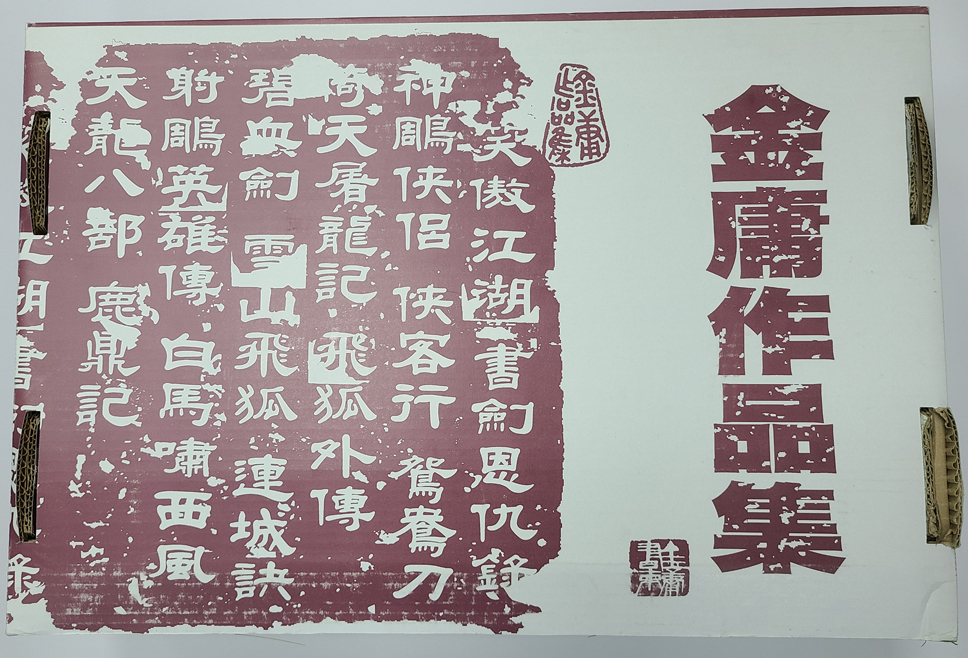 金庸作品集
金庸
作品集
笑傲江湖 書劍恩仇錄
神鵰俠侶 俠客行 鴛鴦刀
倚天屠龍記 飛狐外傳
碧血劍 雪山飛狐 連城訣
射鵰英雄傳 白馬嘯西風
天龍八部 鹿鼎記